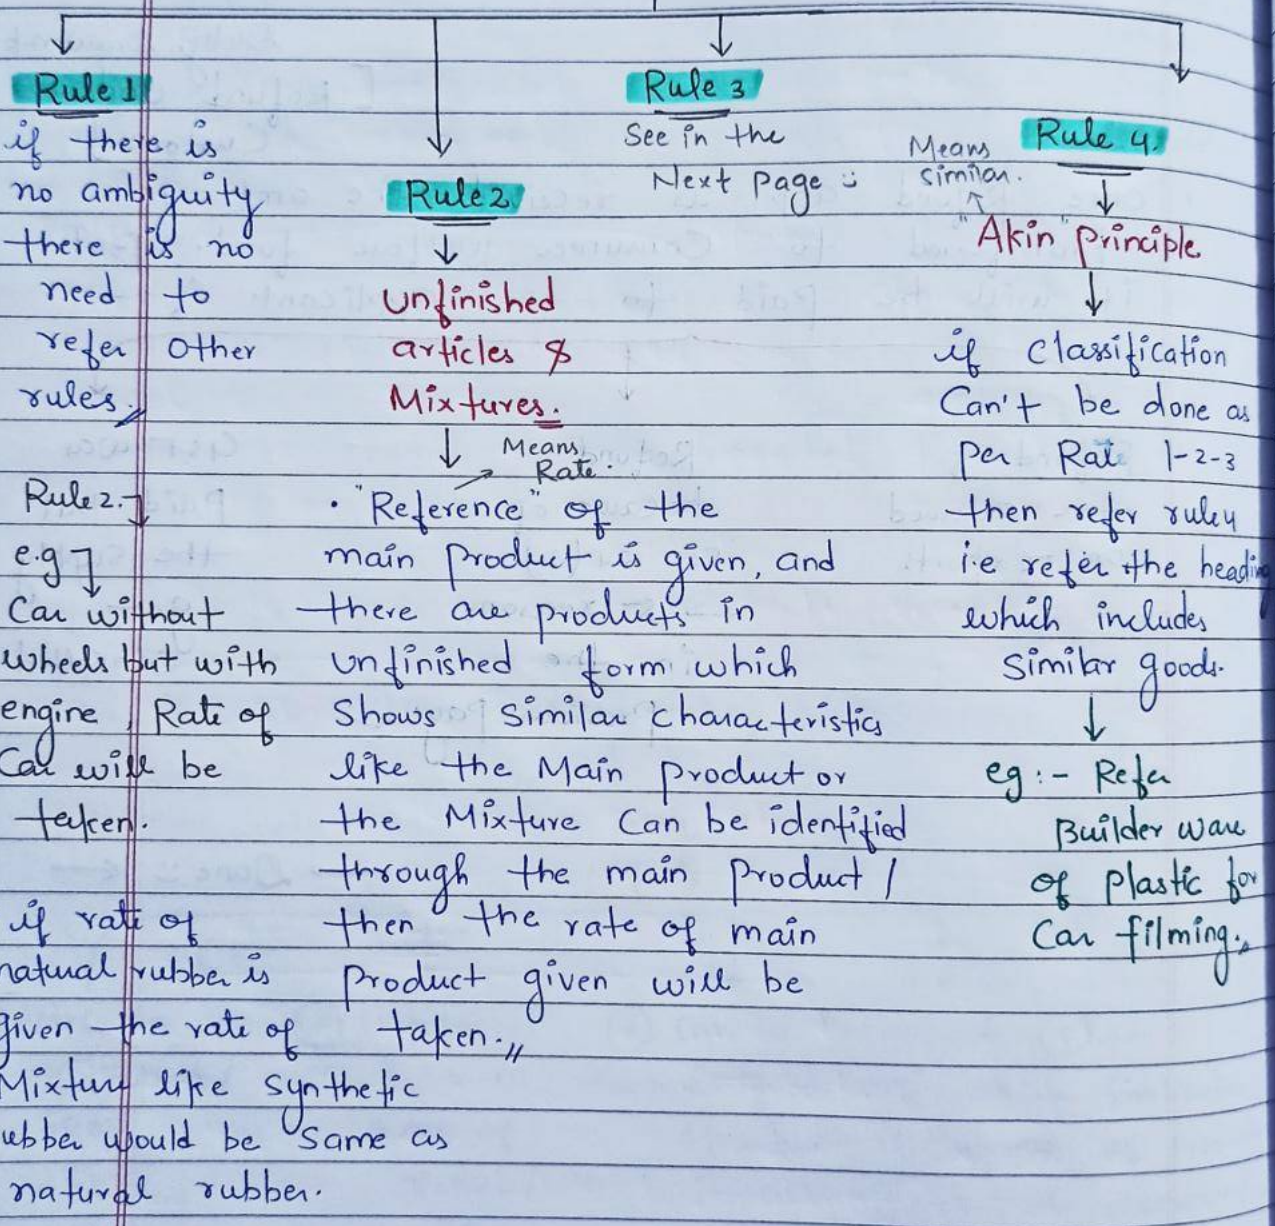 Rule 1
if there is
no ambiguity
there is no
need to
refer other
rules.
Rule 2.
e.g
Car without
wheels but with
engine, Rate of
Car will be
taken.
if rate of
natural rubber is
given the rate of
Mixture like synthetic
ubber would be same as
natural rubber.
Rule 2
Unfinished
articles &
Mixtures.
Means
Rate.
• "Reference" of the
main product is given, and
there are products in
Unfinished form which
Shows Similar characteristics
like the Main product or
the Mixture Can be identified
through the main product /
then the rate of main
product given will be
taken.
Rule 3
See in the
Next page
Rule 4.
Means
similar.
"Akin" principle
if Classification
Can't be done as
per Rate 1-2-3
then refer rule 4
i.e refer the heading
which includes
Similar goods.
eg :- Refer
Builder ware
of plastic for
Car filming.